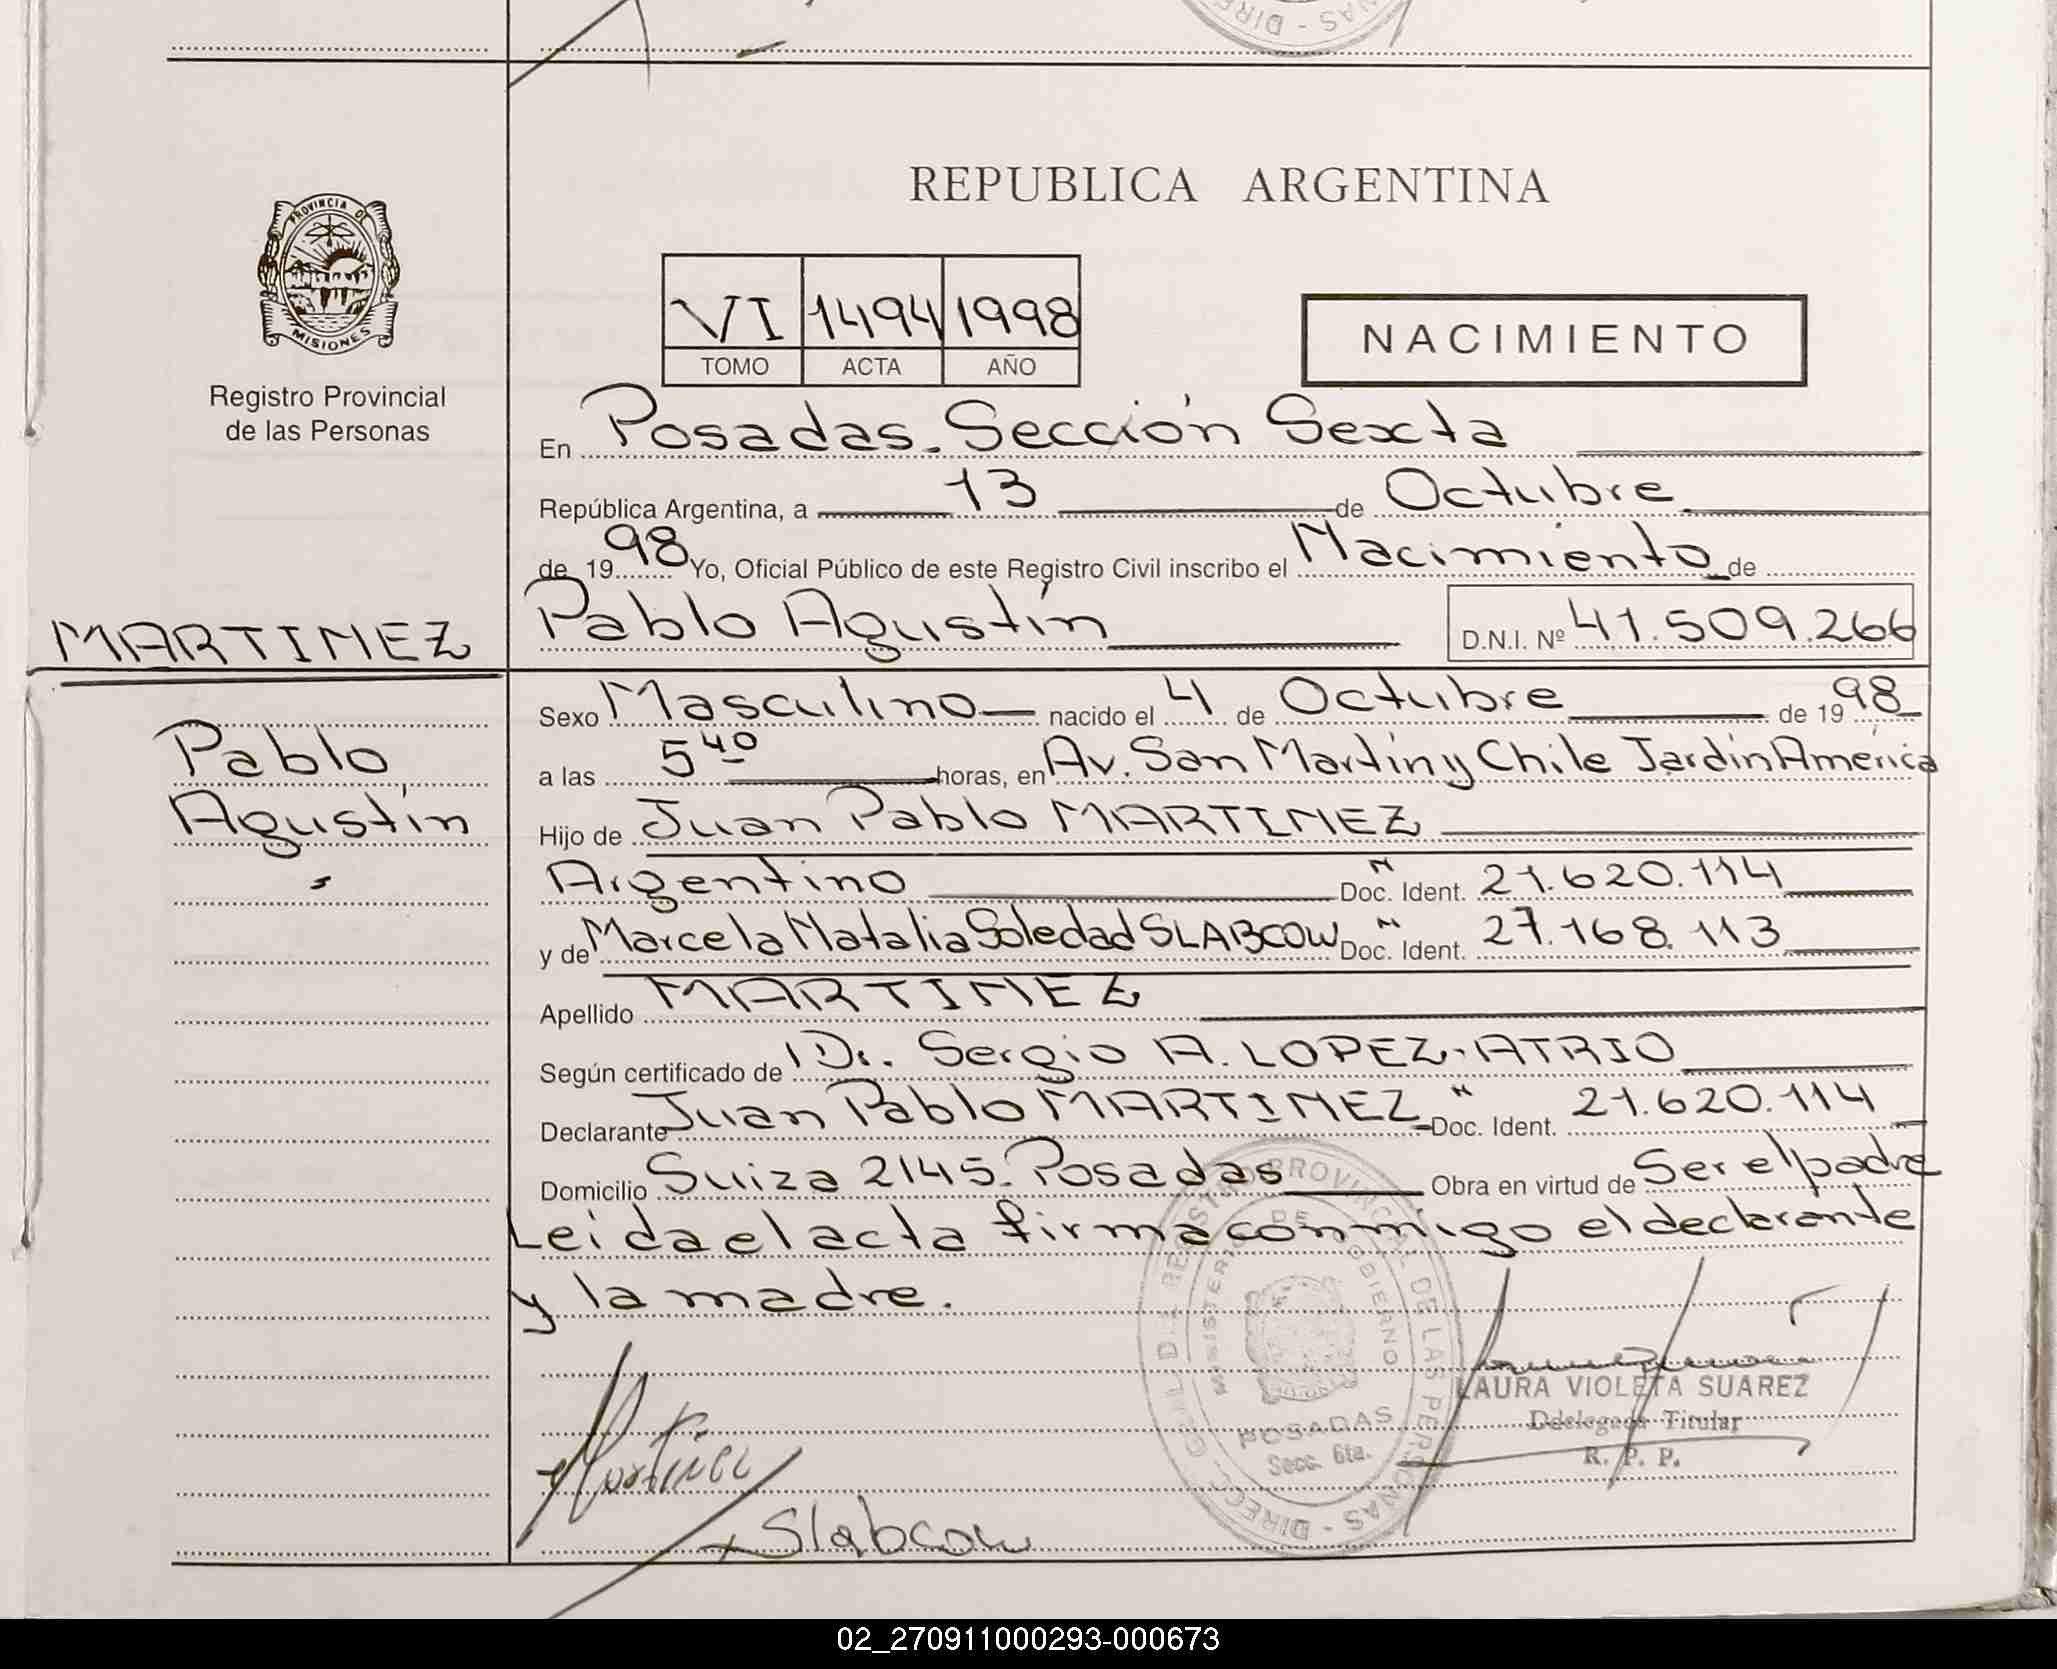 PROVINCIA DE
MISIONES
Registro Provincial
de las Personas
MARTINEZ
Pablo
Agustín
REPUBLICA ARGENTINA
VI 1494 1998
TOMO ACTA AÑO
NACIMIENTO
En Posadas. Sección Sexta
República Argentina, a 13 de Octubre
de 1998 Yo, Oficial Público de este Registro Civil inscribo el Nacimiento de
Pablo Agustín D.N.I. Nº 41.509.266
Sexo Masculino nacido el 4 de Octubre de 1998
a las 5 40 horas, en Av. San Martín y Chile Jardín América
Hijo de Juan Pablo MARTINEZ
Argentino Doc. Ident. 21.620.114
y de Marcela Natalia Soledad SLABCOW Doc. Ident. 27.168.113
Apellido MARTINEZ
Según certificado de Dr. Sergio A. LOPEZ-ATRIO
Declarante Juan Pablo MARTINEZ Doc. Ident. 21.620.114
Domicilio Suiza 2145. Posadas Obra en virtud de Ser el padre
Leida el acta firma conmigo el declarante
y la madre.
REGISTRO PROVINCIAL DE LAS PERSONAS - DIREC. GRAL. D
MINISTERIO DE GOBIERNO
POSADAS
Secc. 6ta.
LAURA VIOLETA SUAREZ
Ddelegada Titular
R. P. P.
Martinez
Slabcow
02_270911000293-000673